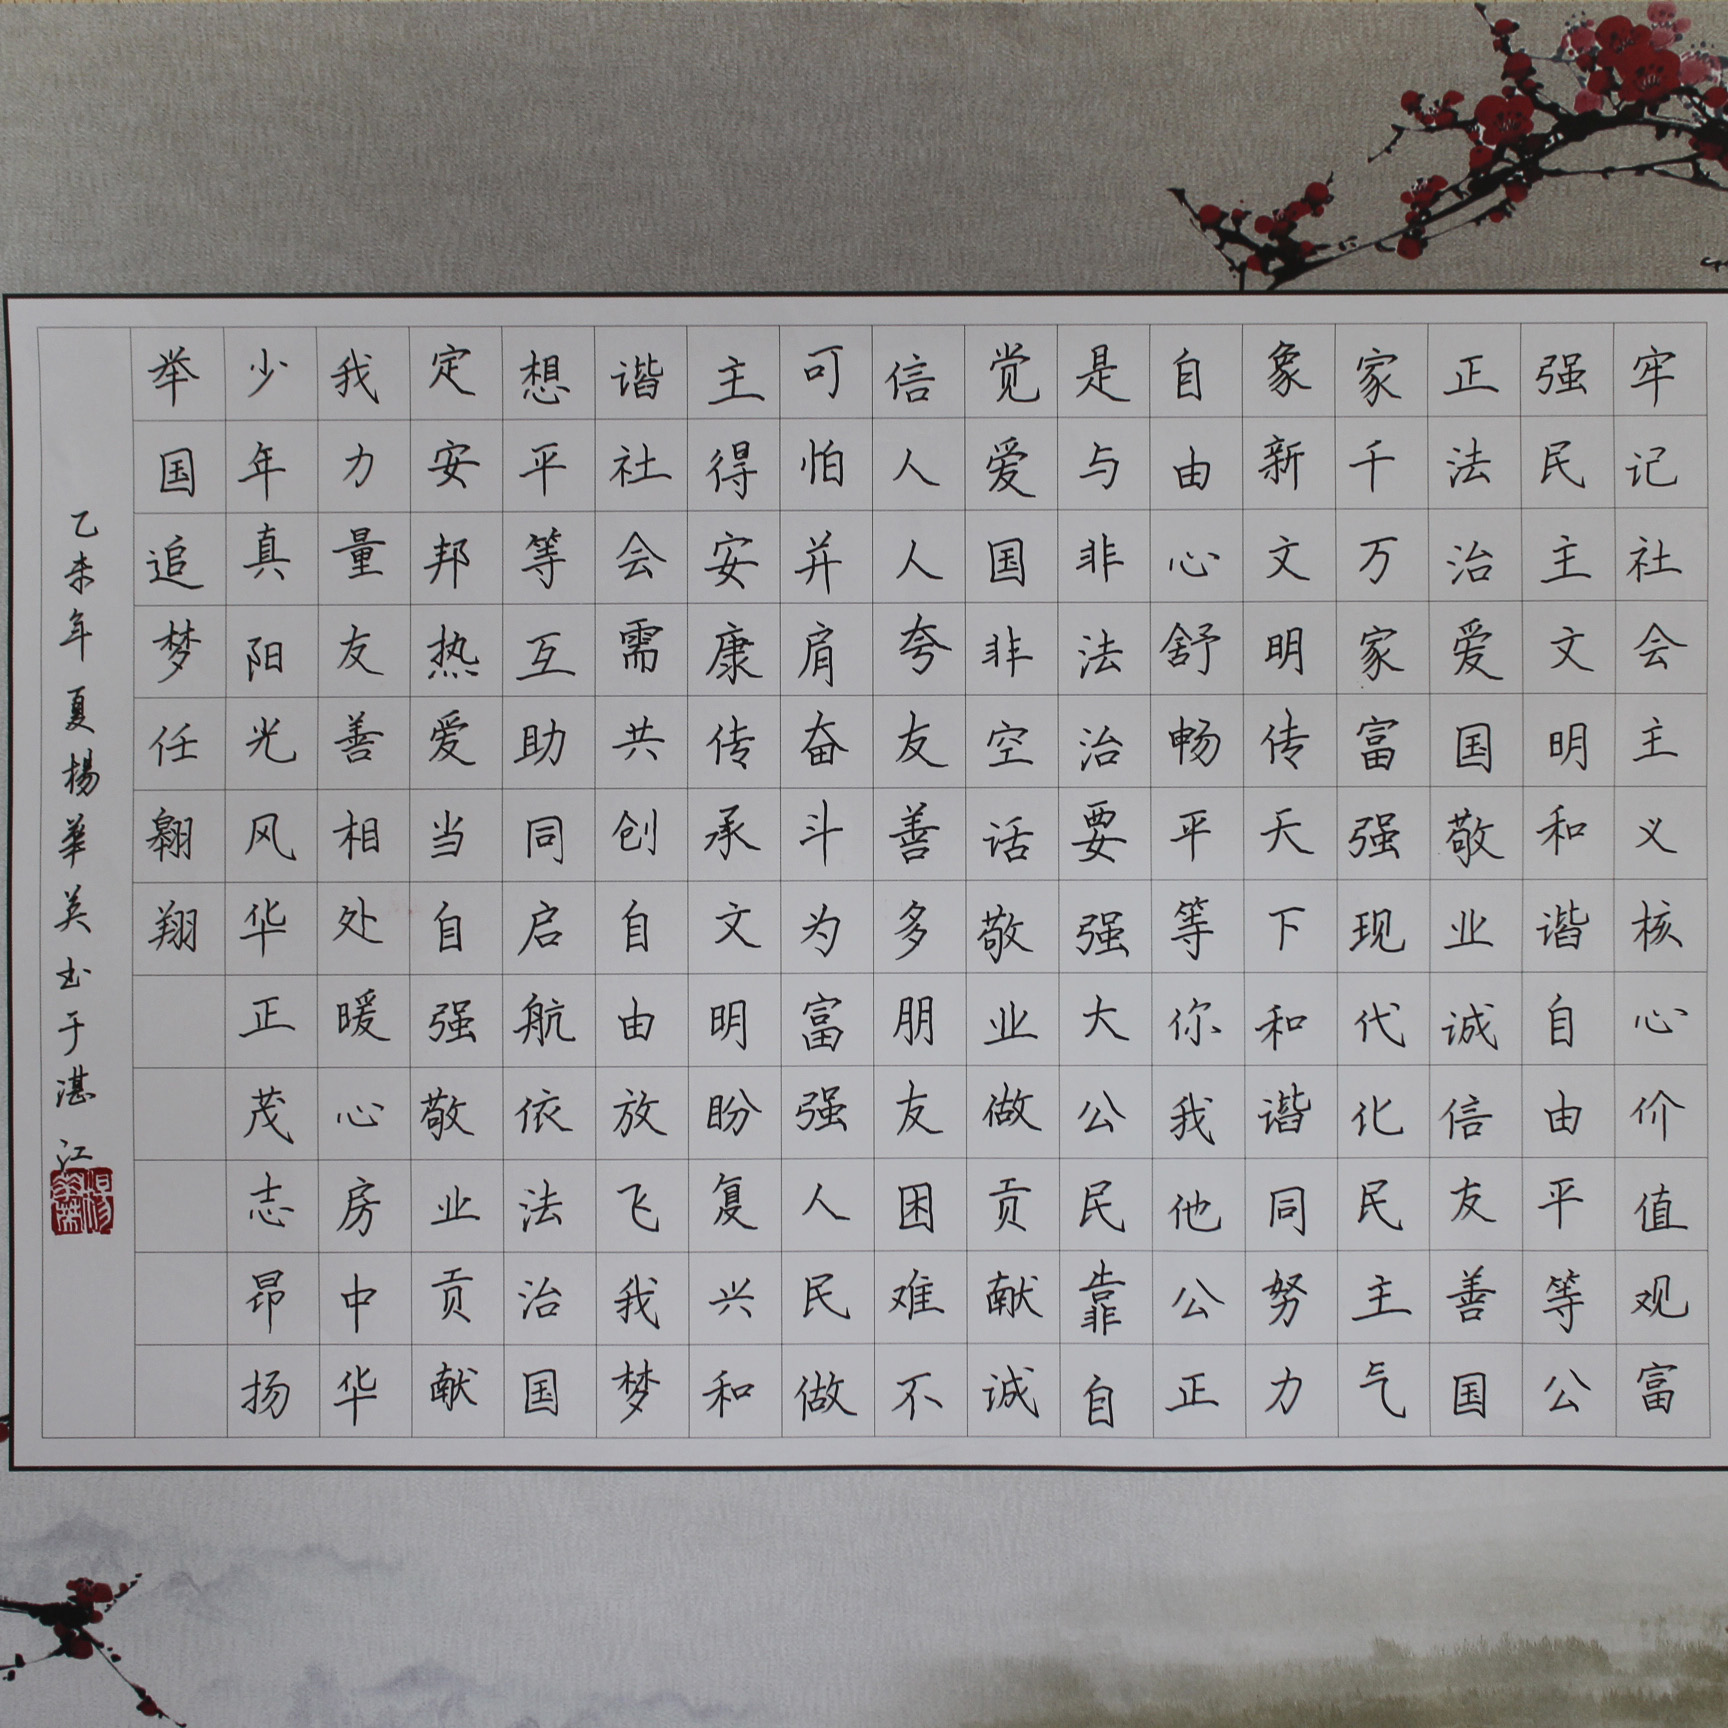 牢记社会主义核心价值观富
强民主文明和谐自由平等公
正法治爱国敬业诚信友善国
家千万家富强现代化民主气
象新文明传天下和谐同努力
自由心舒畅平等你我他公正
是与非法治要强大公民靠自
觉爱国非空话敬业做贡献诚
信人人夸友善多朋友困难不
可怕并肩奋斗为富强人民做
主得安康传承文明盼复兴和
谐社会需共创自由放飞我梦
想平等互助同启航依法治国
定安邦热爱当自强敬业贡献
我力量友善相处暖心房中华
少年真阳光风华正茂志昂扬
举国追梦任翱翔
乙未年夏楊華英书于湛江